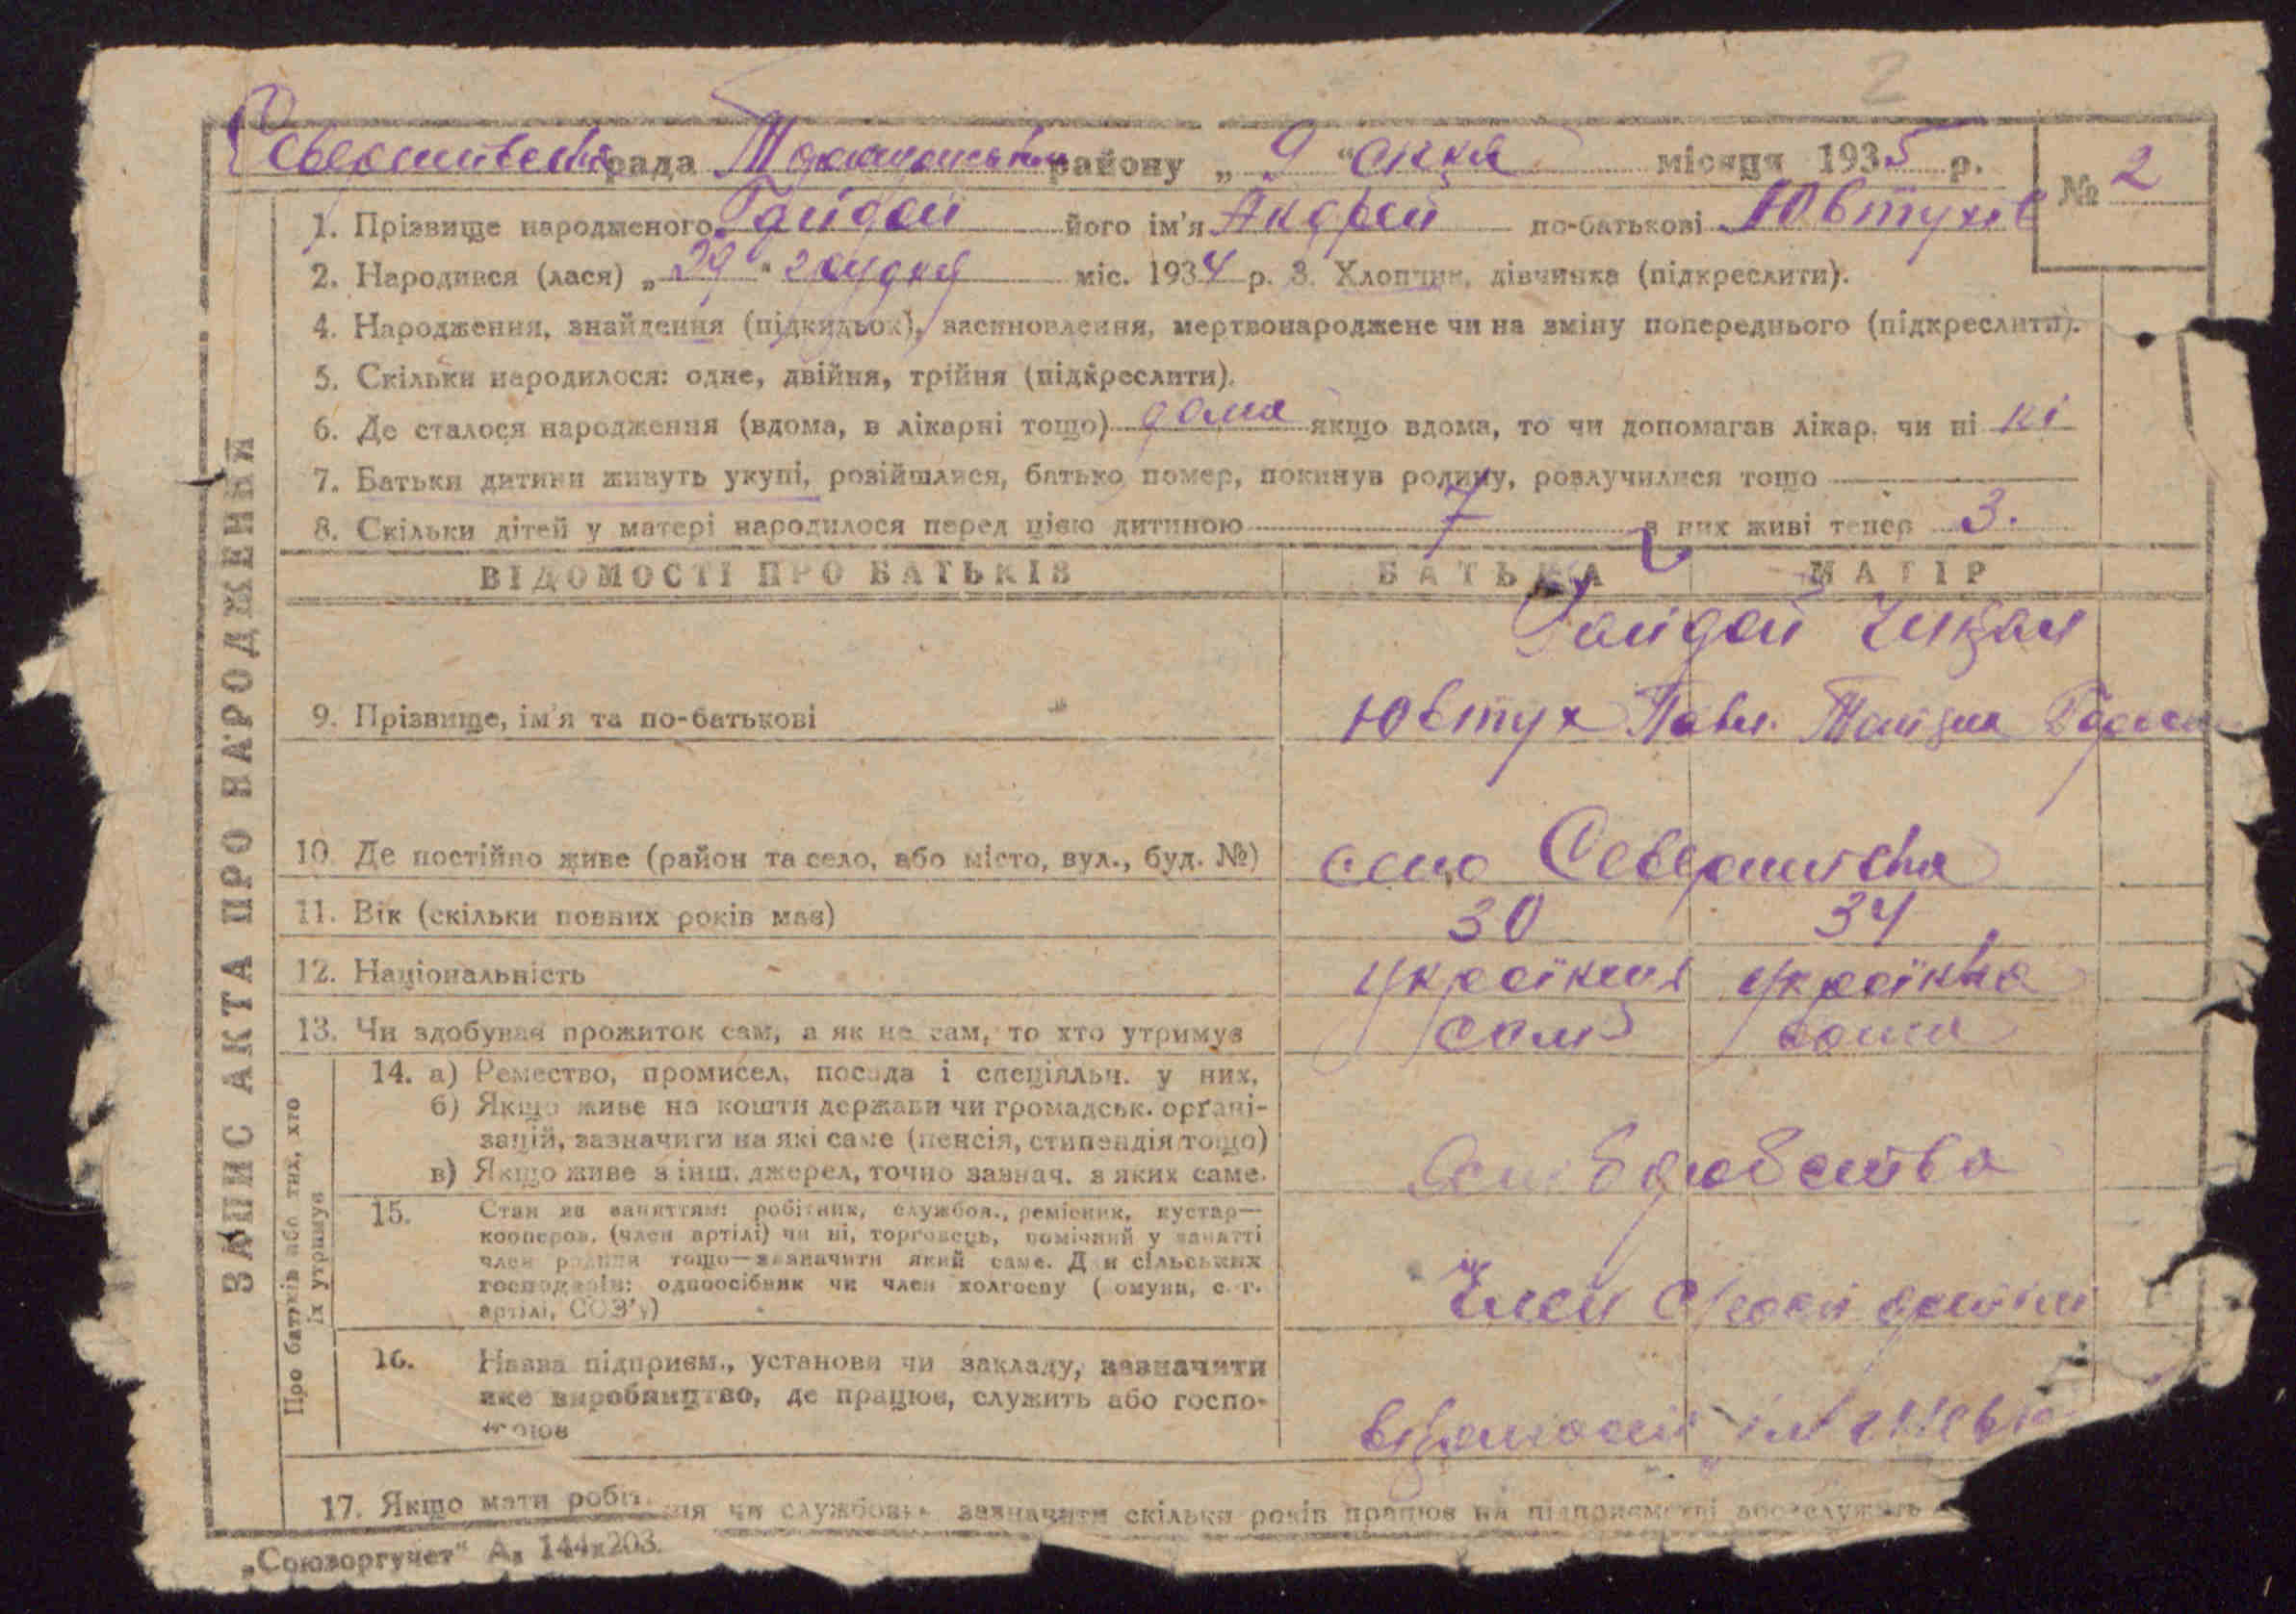 2
рада Таращанськ району „ 9 “ січня місяця 1935 р.
№ 2
1. Прізвище народженого Гайдай його ім'я Андрей по-батьковіЮвтухів
2. Народився (лася) „ 29 “ грудня міс. 1934 р. 3. Хлопчик, дівчинка (підкреслити).
4. Народження, знайдення (підкидьок), насиновлення, мертвонароджене чи на зміну попереднього (підкреслити).
5. Скільки народилося: одне, двійня, трійня (підкреслити).
6. Де сталося народження (вдома, в лікарні тощо) дома якщо вдома, то чи допомагав лікар. чи ні ні
7. Батьки дитини живуть укупі, розійшлися, батько помер, покинув родину, розлучилися тощо
8. Скільки дітей у матері народилося перед цією дитиною 7 з них живі тепер 3.
ВІДОМОСТІ ПРО БАТЬКІВ БАТЬКА МАТІР
Гайдай
9. Прізвище, ім'я та по-батькові Ювтух Павл.
10. Де постійно живе (район та село, або місто, вул., буд. №) село
11. Вік (скільки повних років має) 30 34
12. Національність українец українка
13. Чи здобував прожиток сам, а як не сам, то хто утримує сам сама
ЗАПИС АКТА ПРО НАРОДЖЕННЯ
Про батьків або тих, хто
їх утримує
14. а) Ремество, промисел, посада і спеціяльн. у них,
б) Якщо живе на кошти держави чи громадськ. орґані-
зацій, зазначити на які саме (пенсія, стипендія тощо)
в) Якщо живе з інш. джерел, точно зазнач. з яких саме.
15. Стан за заняттям: робітник, службов., ремісник, кустар—
кооперов. (член артілі) чи ні, торговець, помічний у занятті
член родини тощо—зазначити який саме. Для сільських
господарів: одноосібник чи член колгоспу (комуни, с. г.
артілі, СОЗ'у)
Член артіли
16. Назва підприєм., установи чи закладу, зазначити
яке виробництво, де працює, служить або госпо-
17. Якщо мати робіт ця чи службовка зазначити скільки років працює на підприємстві або служить
„Союзоргучет“ А₅ 144х203.